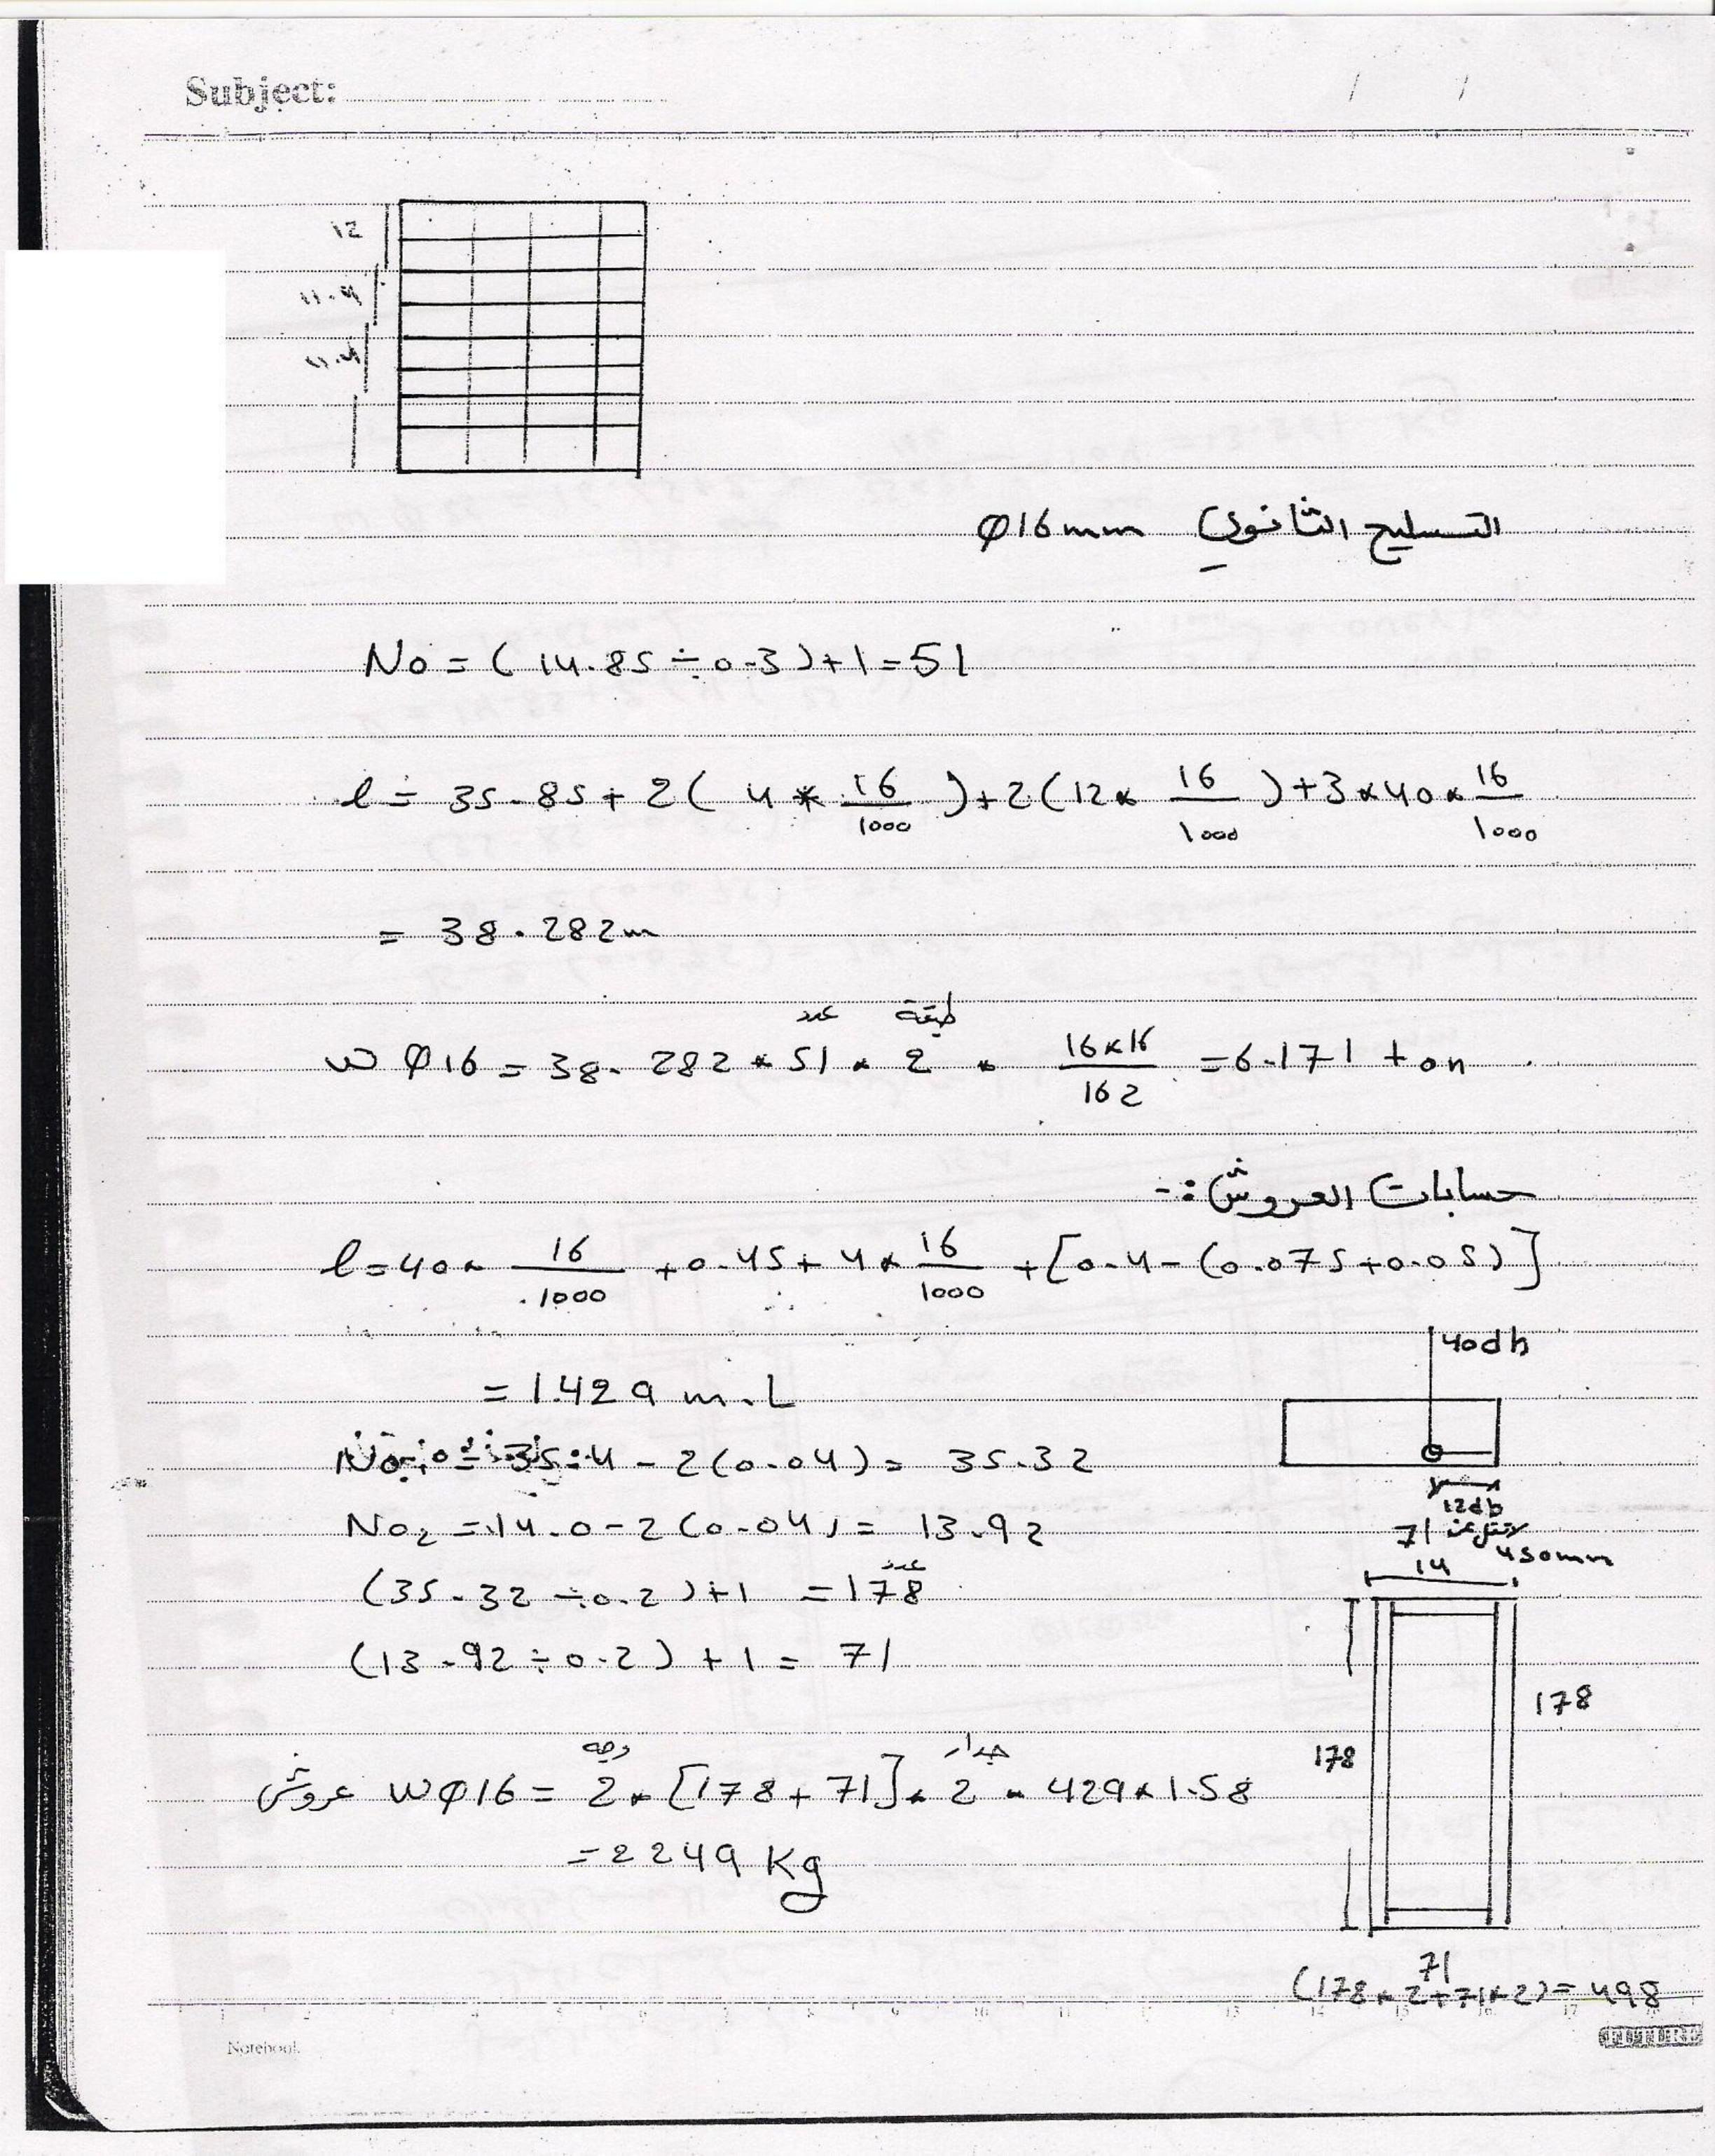 Subject:
/ /
12
11.4
11.4
التسليح الثانوي φ16mm
No = ( 14.85 ÷ 0.3 ) + 1 = 51
l = 35.85 + 2 ( 4 * 16/1000 ) + 2 ( 12 * 16/1000 ) + 3 * 40 * 16/1000
= 38.282 m
عدد طبقة
w φ16 = 38.282 * 51 * 2 * 16*16/162 = 6.171 ton
حسابات العروش :-
l = 40 * 16/1000 + 0.45 + 4 * 16/1000 + [ 0.4 - (0.075 + 0.05) ]
40db
= 1.429 m.L
35.4 - 2(0.04) = 35.32
12db
No2 = 14.0 - 2(0.04) = 13.92
لا تقل عن
71
450mm
عدد
(35.32 ÷ 0.2) + 1 = 178
14
(13.92 ÷ 0.2) + 1 = 71
178
178
وجه جدار
عروش wφ16 = 2 * [178 + 71] * 2 * 429 * 1.58
= 2249 Kg
71
(178 * 2 + 71 * 2) = 498
1 2 4 5 6 7 8 9 10 11 13 14 15 16 17
Notebook
FUTURE